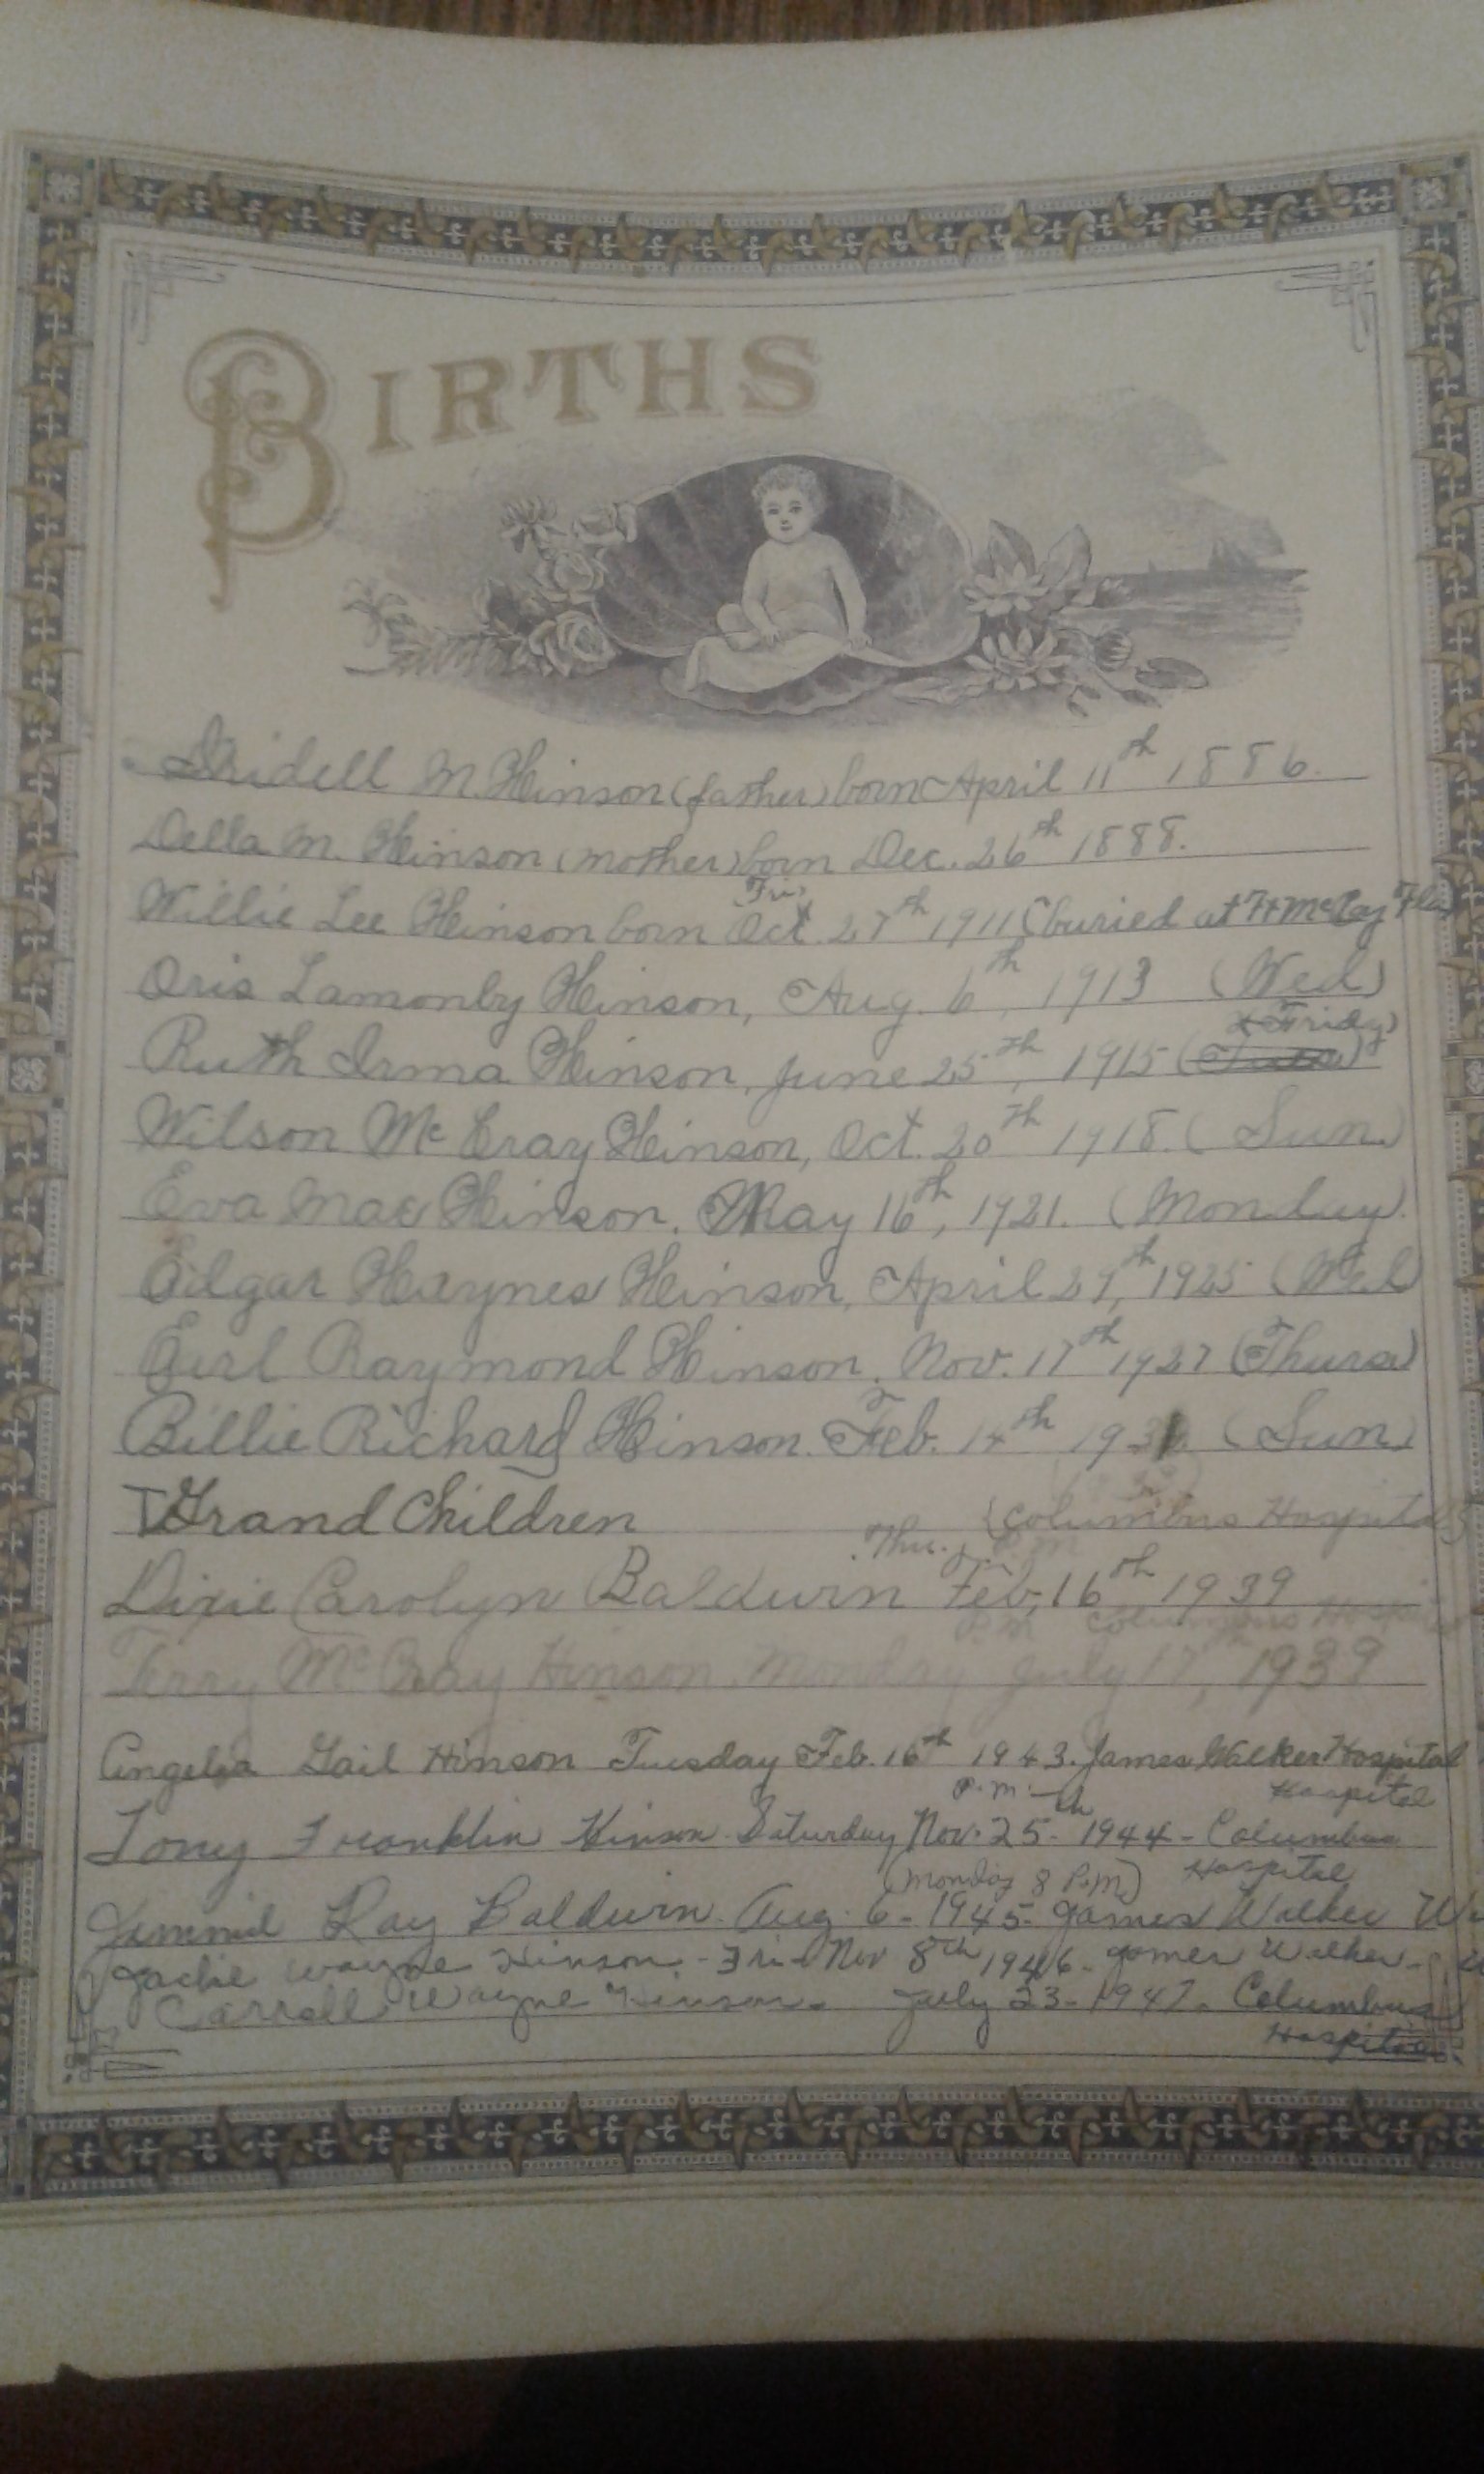 BIRTHS
Iridell M. Hinson (father) born April 11th 1886.
Della M. Hinson (mother) born Dec. 26th 1888.
Fri.
Willie Lee Hinson born Oct. 27th 1911 (buried at Ft McCoy Fla
Oris Lamonby Hinson, Aug. 6th, 1913 (Wed)
Friday)
Ruth Irma Hinson, June 25th, 1915 (Tues)
Wilson McCray Hinson, Oct. 20th 1918. (Sun.)
Eva Mae Hinson. May 16th, 1921. (Monday)
Edgar Haynes Hinson, April 29th, 1925 (Wed
Earl Raymond Hinson, Nov. 17th 1927 (Thurs)
Billie Richard Hinson. Feb. 14th 193 (Sun)
Grand Children (Columbus Hospital)
Thu. P.M
Dixie Carolyn Baldwin Feb, 16th 1939
P.M Columbus Hospital
Terry McCray Hinson. Monday July 17th, 1939
Angelia Gail Hinson Tuesday Feb. 16th 1943. James Walker Hospital
P.M. Hospital
Tony Franklin Hinson Saturday Nov. 25th 1944 - Columbus
(Monday 8 P.M) Hospital
Jimmie Ray Baldwin. Aug. 6 - 1945. James Walker
Jackie Wayne Hinson. - Fri - Nov 8th 1946 - James Walker -
Carroll Wayne Hinson. July 23 - 1947. Columbus
Hospital